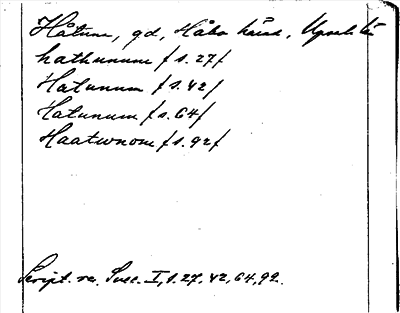 Håtuna, gd, Håbo härad, Upsala län
hathunum /s. 27/
Hatunum /s. 42/
Hatunum /s. 64/
Haatwnom /s. 92/
Script. rer. Svec. I, s. 27, 42, 64, 92.